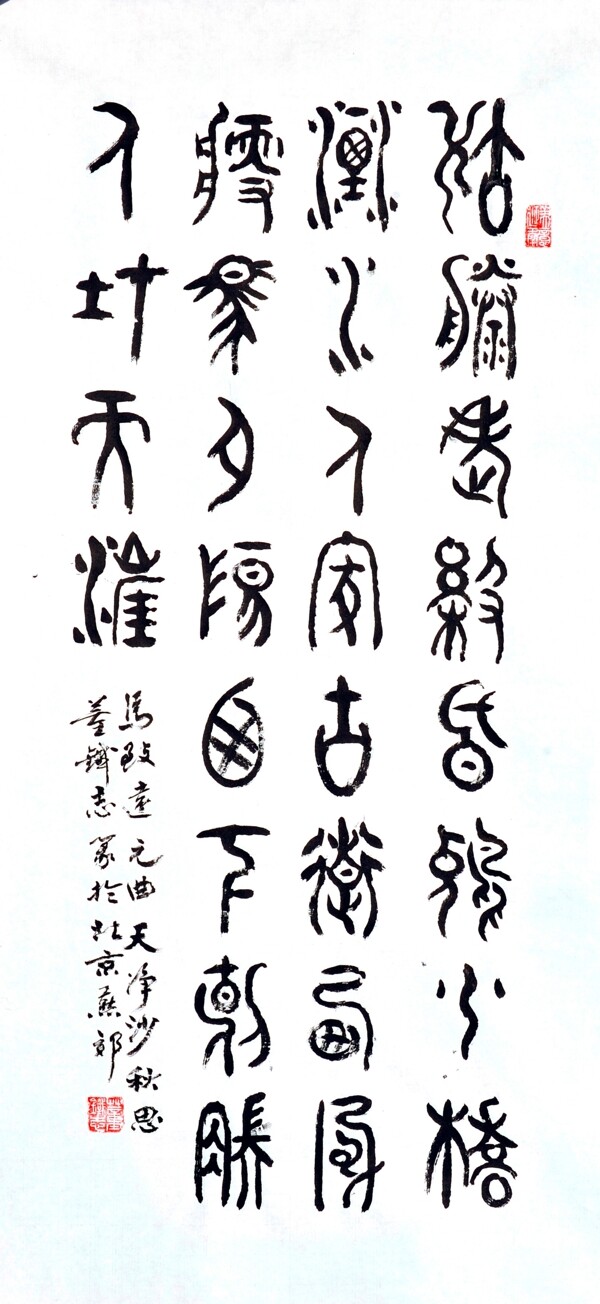 枯藤老樹昏鴉小橋
流水人家古道西風
瘦馬夕陽西下斷腸
人在天涯
馬致遠元曲天净沙秋思
董鐵志篆於北京燕郊